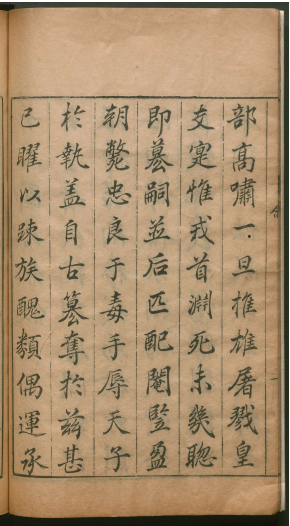 部高嘯一旦推雄屠戮皇
支寔惟戎首淵死未幾聡
即篡嗣並后匹配閹豎盈
朝斃忠良于毒手辱天子
於執盖自古篡奪於兹甚
已曜以踈族醜類偶運承